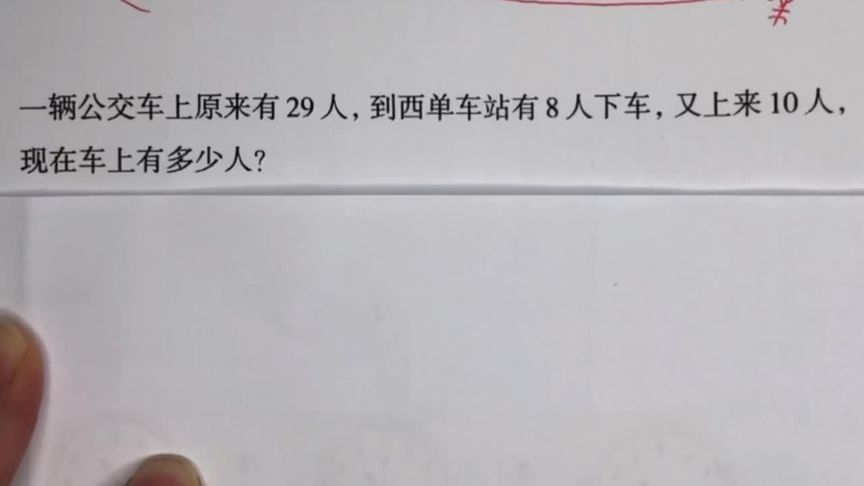 一辆公交车上原来有 29 人，到西单车站有 8 人下车，又上来 10 人，
现在车上有多少人？